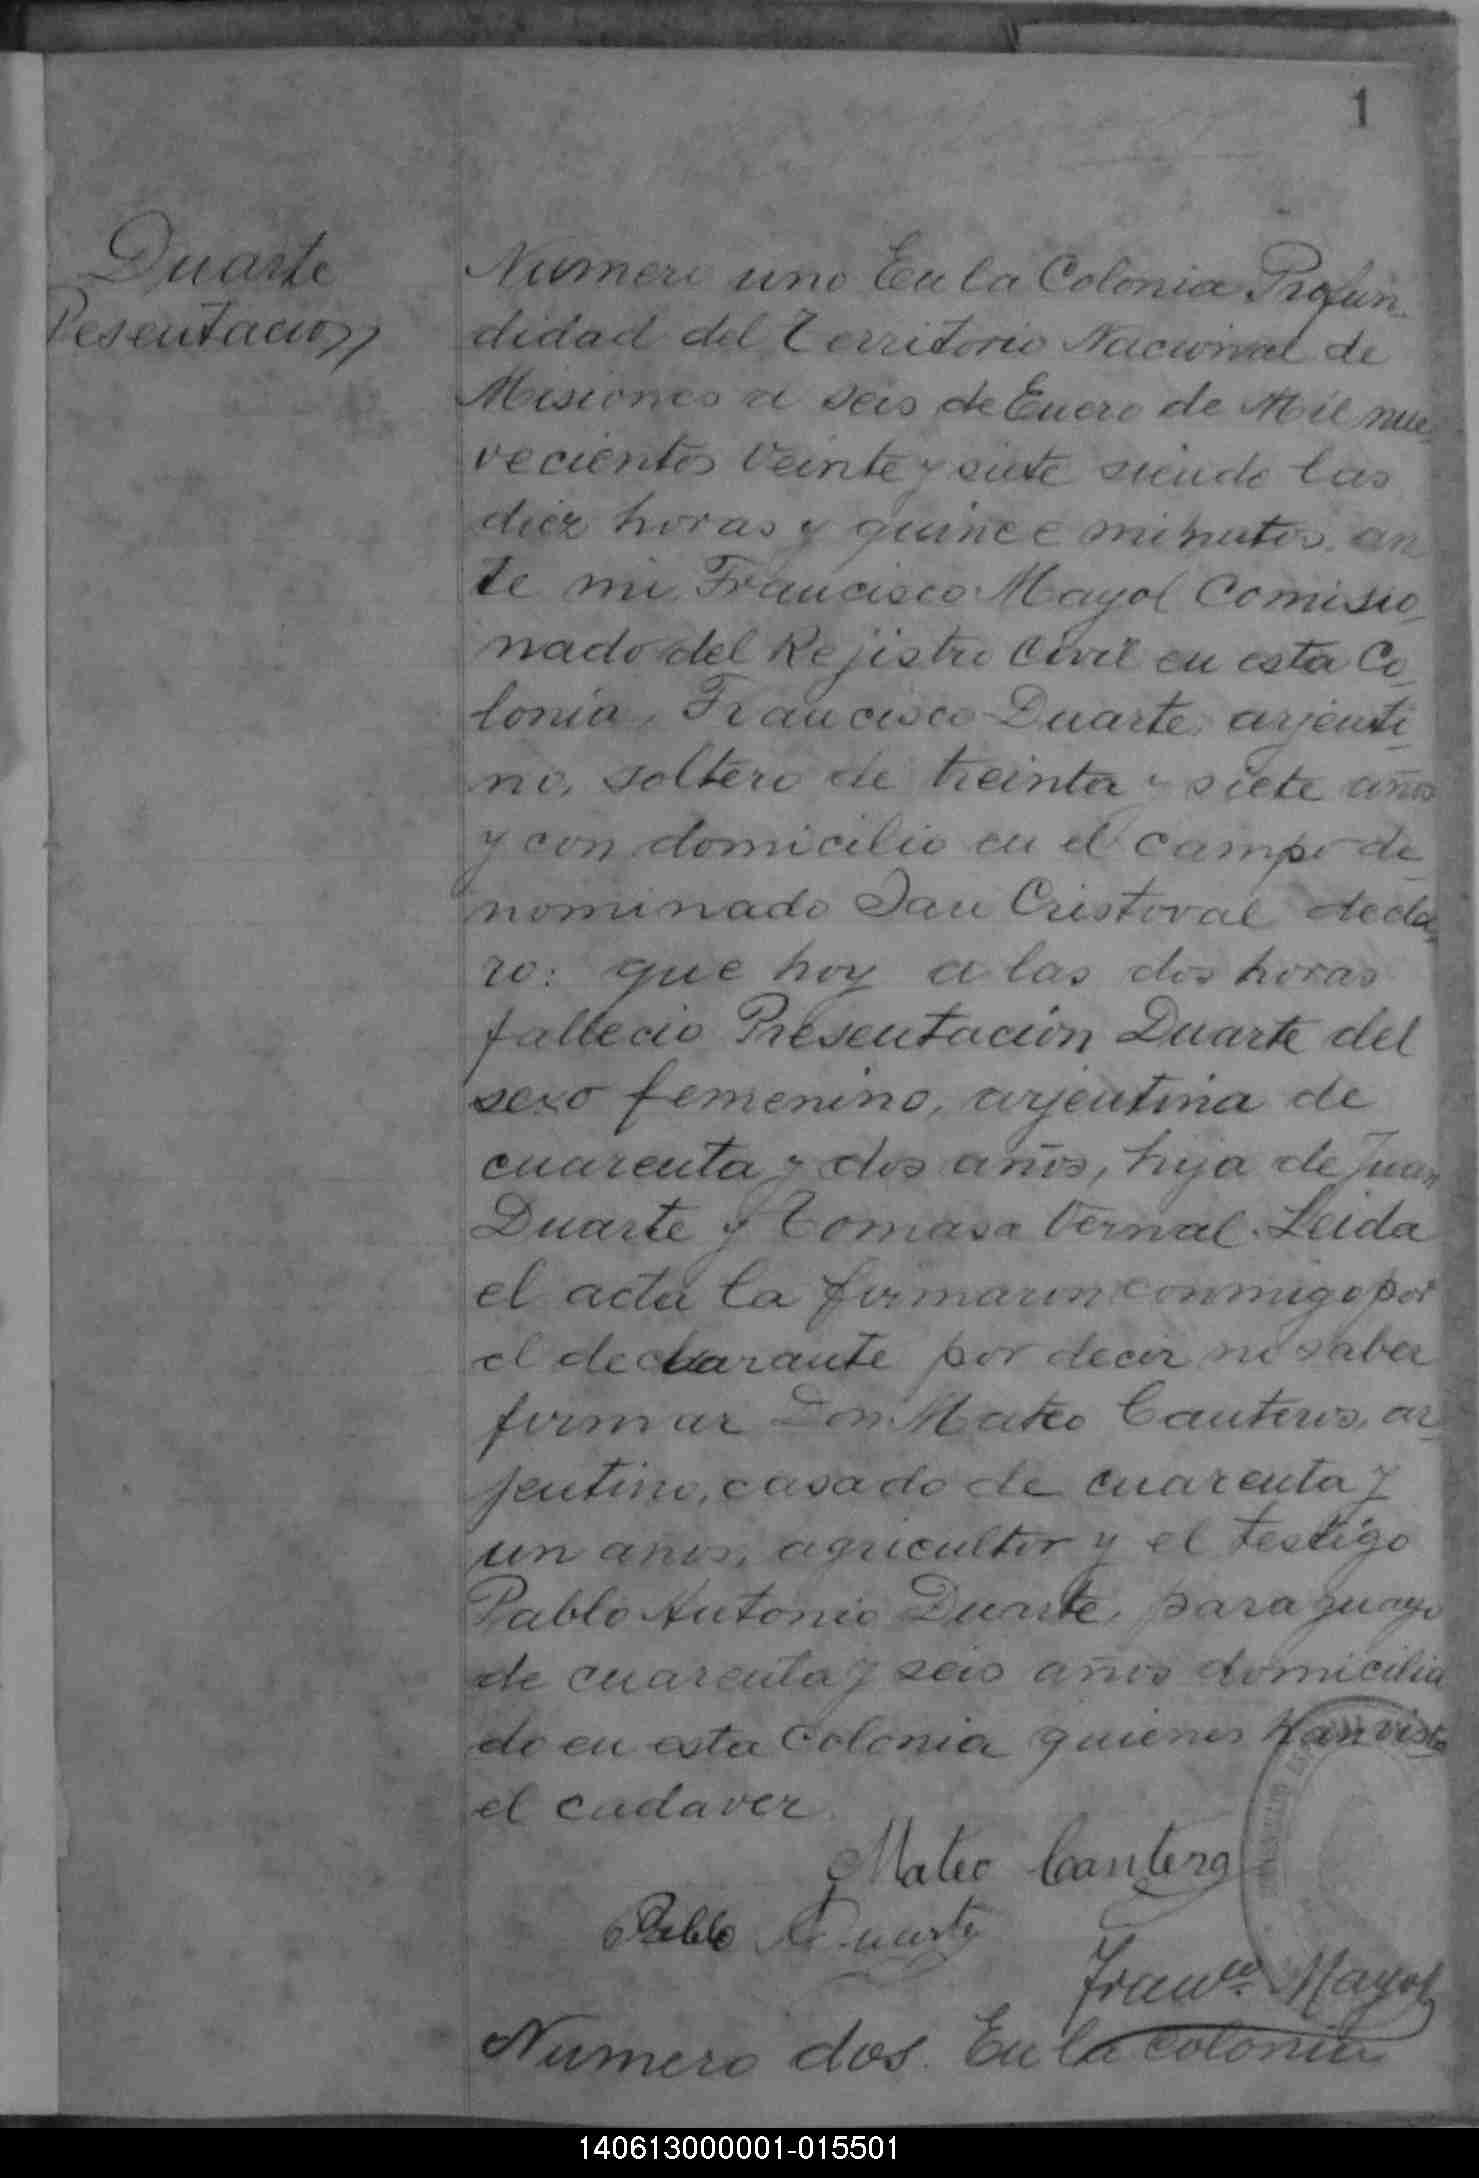 1
Duarte
Pesentacion
Numero uno En la Colonia Profun-
didad del Territorio Nacional de
Misiones a seis de Enero de Mil nue-
vecientos veinte y siete siendo las
diez horas y quince minutos. an
te mi Francisco Mayol Comisio-
nado del Rejistro Civil en esta Co-
lonia, Francisco Duarte, arjenti-
no, soltero de treinta y siete años
y con domicilio en el campo de-
nominado San Cristoval decla-
ro: que hoy a las dos horas
fallecio Presentación Duarte del
sexo femenino, arjentina de
cuarenta y dos años, hija de Juan
Duarte y Tomasa Vernal. Leida
el acta la firmaron conmigo por
el declarante por decir no saber
firmar Don Mateo Canteros, ar-
jentino, casado de cuarenta y
un anos, agricultor y el testigo
Pablo Antonio Duarte, paraguayo
de cuarenta y seis años domicilia
do en esta Colonia quienes han visto
el cadaver
Mateo Cantero
Pablo A Duarte
Franco. Mayol
Numero dos. En la colonia
140613000001-015501